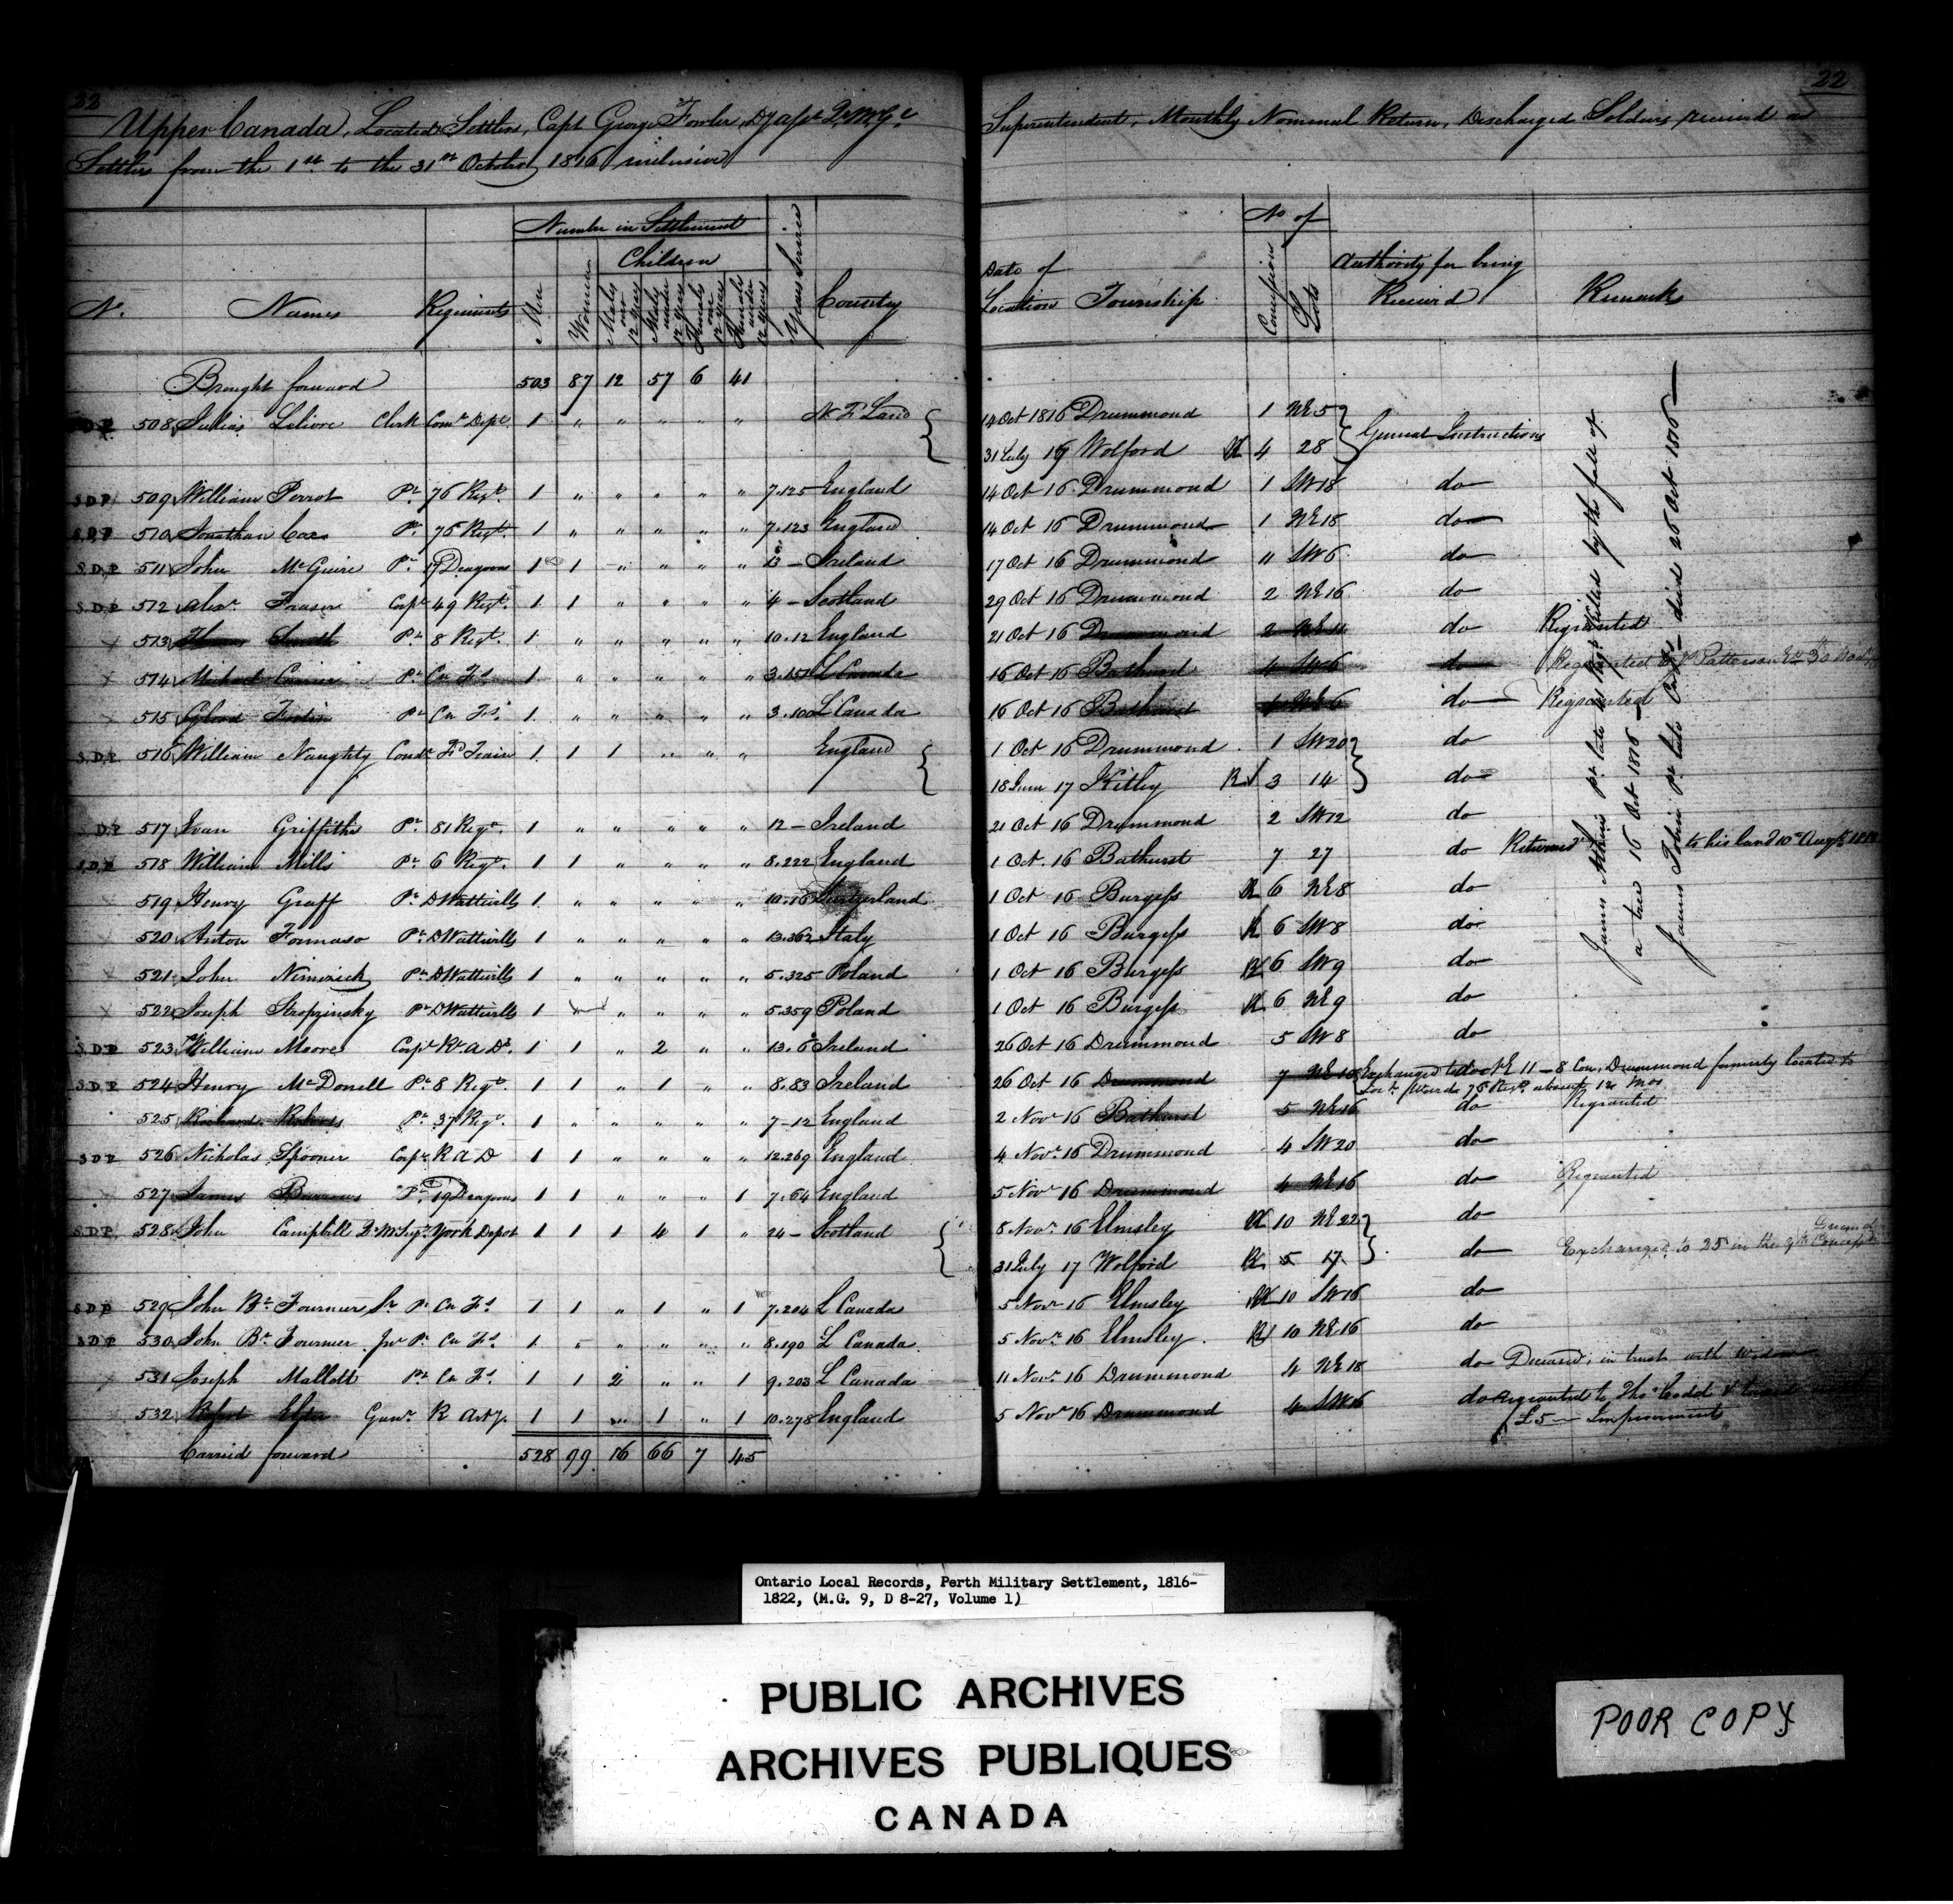 22
Upper Canada, Located Settlers, Capt George Fowler, Dy asst Qr Mr Gl
Settlers from the 1st to the 31st October 1816 inclusive
Number in Settlement
Children
No. Names Regiments Men Women Males over 12 years Males under 12 years Females over 12 years Females under 12 years Years Service Country
Brought forward 503 87 12 57 6 41
SDP 508 Julius Lelivre Clerk Comt Dept 1 " " " " " N F Land
SDP 509 William Perrot Pt 76 Regt. 1 " " " " " 7.125 England
S.D.P 510 Jonathan Pt. 76 Regt. 1 " " " " " 7.123 England
S.D.P 511 John McGuire Pt 19 Dragoons 1 1 " " " " 13 - Ireland
SDP 512 Alexr Fraser Corpl 49 Regt. 1 1 " " " " 4 - Scotland
513 Smith Pt 8 Regt. 1 " " " " " 10.12 England
514 Michael Pt Cn Fs 1 " " " " " 3.151 L Canada
515 Pt Cn Fs 1 " " " " " 3.100 L Canada
S.D.P 516 William Naughty Condr Fd Train 1 1 1 " " " England
SDP 517 Evan Griffiths Pt. 81 Regt. 1 " " " " " 12 - Ireland
S.D.P 518 William Mills Pt 6 Regt. 1 1 " " " " 8.222 England
519 Henry Graff Pt DWattvills 1 " " " " " 10.16 Switzerland
520 Anton Fomaso Pt DWattvills 1 " " " " " 13.362 Italy
521 John Nimrisck Pt DWattvills 1 " " " " " 5.325 Poland
522 Joseph Stropzinsky Pt DWattvills 1 " " " " 5.359 Poland
S.D.P 523 William Moore Corpl Rl A Ds. 1 1 " 2 " " 13.6 Ireland
SDP 524 Henry McDonell Pt 8 Regt. 1 1 " 1 " " 8.83 Ireland
525 Richard Roberts Pt 37 Regt. 1 " " " " " 7-12 England
SDP 526 Nicholas Spooner Corpl R A D 1 1 " " " " 12.269 England
527 James Burrows Pt 19 Dragoons 1 1 " " " 1 7.64 England
S.D.P. 528 John Campbell York Depot 1 1 1 4 1 " 24 - Scotland
SDP 529 John Bt Fournier Sr Pt Cn Fs 1 1 " 1 " 1 7.204 L Canada
SDP 530 John Bt Fournier Jnr Pt Cn Fs 1 " " " " " 8.190 L Canada
531 Joseph Mallett Pt Cn Fs. 1 1 2 " " 1 9.203 L Canada
532 Robert Gunr R Arty. 1 1 " 1 " 1 10.278 England
Carried forward 528 99 16 66 7 45
22
Superintendent, Monthly Nominal Return, Discharged Soldiers received as
No of
Date of Location Township Concessions Lots Authority for being Received Remarks
14 Oct 1816 Drummond 1 NE 5
General Instructions
31 July 19 Wolford R 4 28
14 Oct 16 Drummond 1 SW 18 do
14 Oct 16 Drummond 1 NE 18 do
17 Oct 16 Drummond 11 SW 6 do
29 Oct 16 Drummond 2 NE 16 do
21 Oct 16 Drummond 2 NE 11 do Regranted
16 Oct 16 Bathurst 4 SW 6 do Regranted Patterson
16 Oct 16 Bathurst 4 NE 6 do Regranted
1 Oct 16 Drummond 1 SW 20 do
18 June 17 Kitley R 3 14 do
21 Oct 16 Drummond 2 SW 12 do
1 Oct. 16 Bathurst 7 27 do Returned to his land 10th Augt 1818
1 Oct 16 Burgess R 6 NE 8 do
1 Oct 16 Burgess R 6 SW 8 do
1 Oct 16 Burgess R 6 SW 9 do
1 Oct 16 Burgess R 6 NE 9 do
26 Oct 16 Drummond 5 SW 8 do
26 Oct 16 Drummond 7 NE 10 Exchanged to NE 11 - 8 Con, Drummond formerly located to
Ward 76 Regt absent 12 mos
2 Novr 16 Bathurst 5 NE 16 do Regranted
4 Novr 16 Drummond 4 SW 20 do
5 Novr 16 Drummond 4 NE 16 do Regranted
8 Novr. 16 Elmsley R 10 NE 22 do
31 July 17 Wolford R 5 17 do Exchanged to 25 in the 9th Concession
5 Novr 16 Elmsley R 10 SW 16 do
5 Novr 16 Elmsley R 10 NE 16 do
11 Novr. 16 Drummond 4 NE 18 do Deceased, in trust with Widow
5 Novr 16 Drummond 4 SW 16 do Regranted to Thos Codd
£5 - Improvements
James Athins Pt late Regt killed by the fall of
a tree 16 Oct 1816 -
James Tobin Pt late died 26 Oct 1816 -
Ontario Local Records, Perth Military Settlement, 1816-
1822, (M.G. 9, D 8-27, Volume 1)
PUBLIC ARCHIVES
ARCHIVES PUBLIQUES
CANADA
POOR COPY